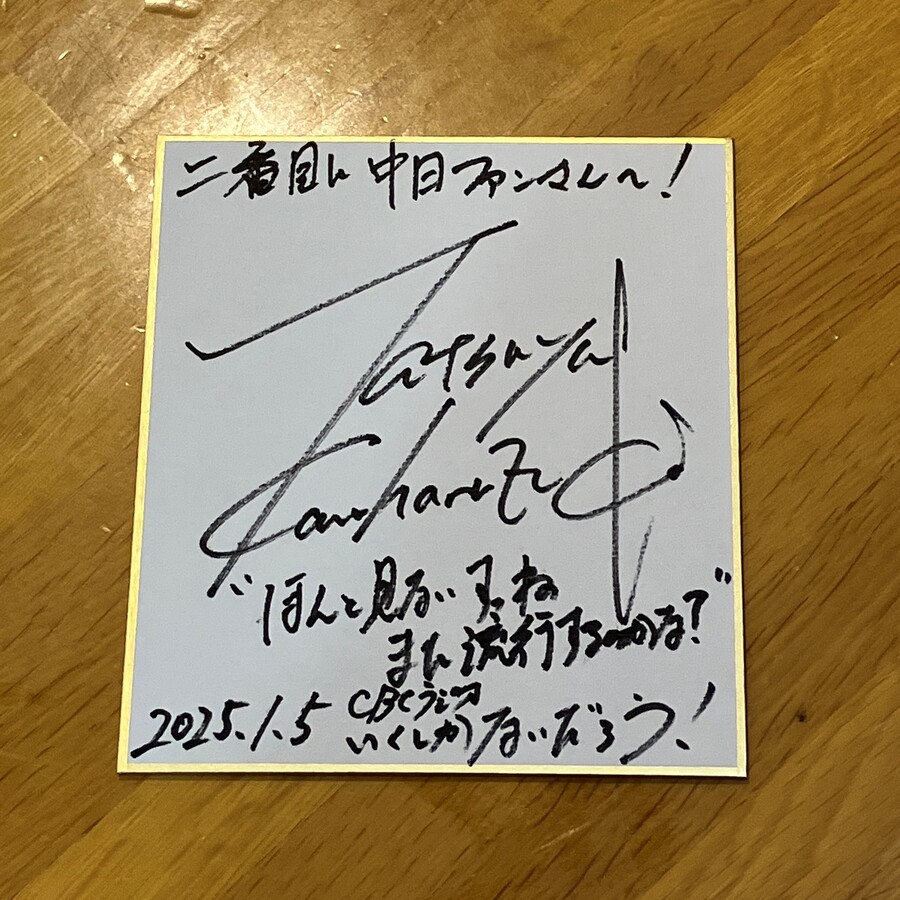 二番目に中日ファンさんへ!
Tatsuya
"ほんと見ないすね
また流行するのかな?"
2025.1.5 CBCラジオ
いくしかないだろう!